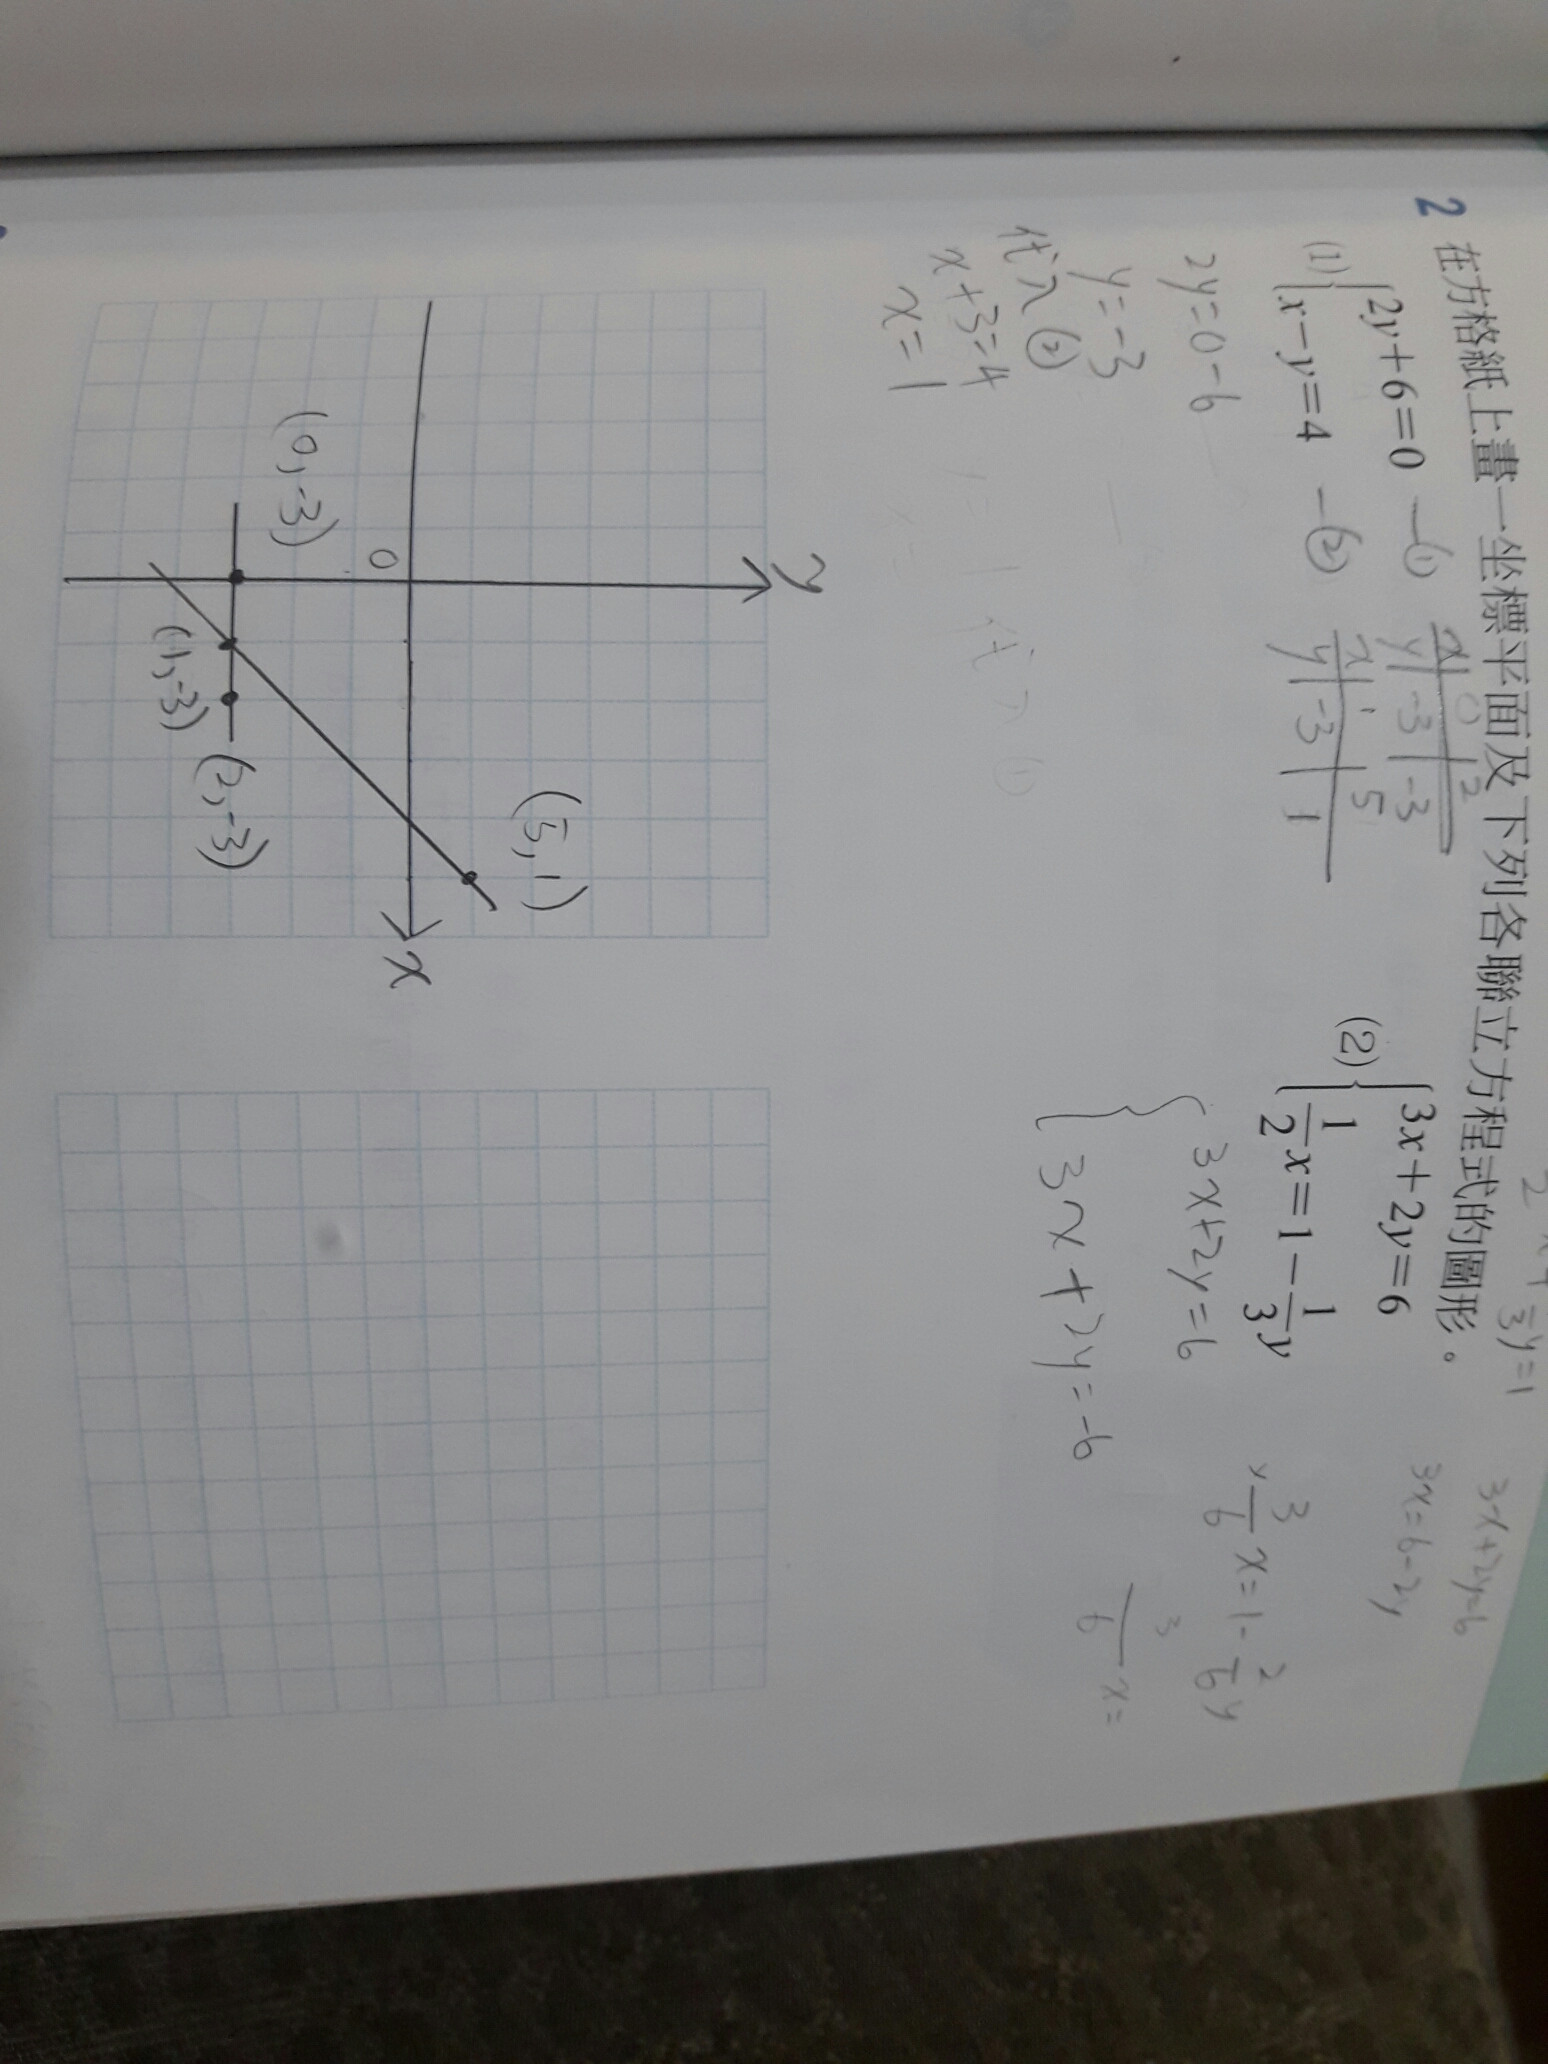 2 在方格紙上畫一坐標平面及下列各聯立方程式的圖形。
(1) { 2y+6=0 —(1)
x-y=4 —(2)
x | 0 | 2
y | -3 | -3
x | 1 | 5
y | -3 | 1
2y=0-6
y=-3
代入(2)
x+3=4
x=1
y
x
0
(0,-3)
(1,-3)
(2,-3)
(5,1)
(2) { 3x+2y=6
1/2x=1-1/3y
{ 3x+2y=6
3x+2y=-6
3/6x=1-2/6y
3x+2y=6
3x=6-2y